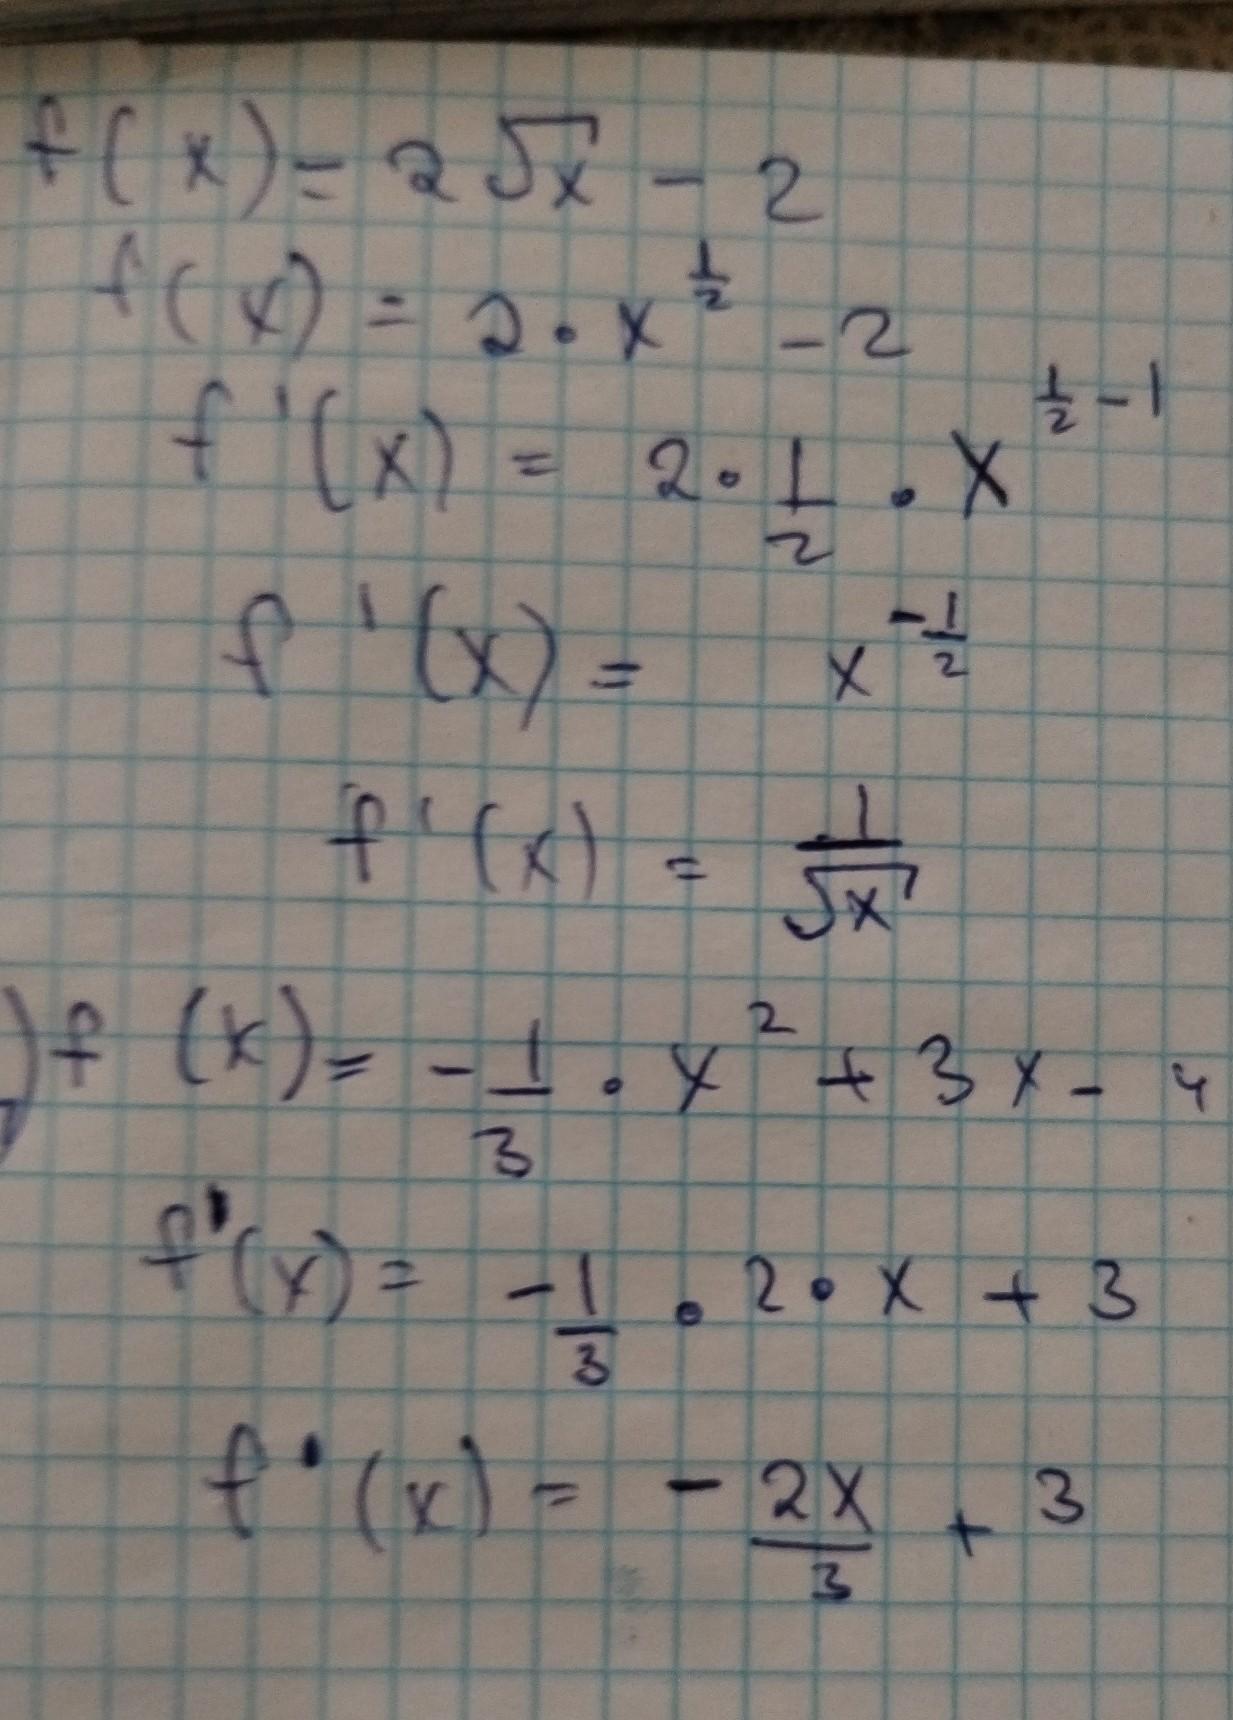 f(x) = 2√x - 2
f(x) = 2 • x^(1/2) - 2
f'(x) = 2 • 1/2 • x^(1/2 - 1)
f'(x) = x^(-1/2)
f'(x) = 1/√x
) f(x) = -1/3 • x^2 + 3x - 4
f'(x) = -1/3 • 2 • x + 3
f'(x) = - 2x/3 + 3